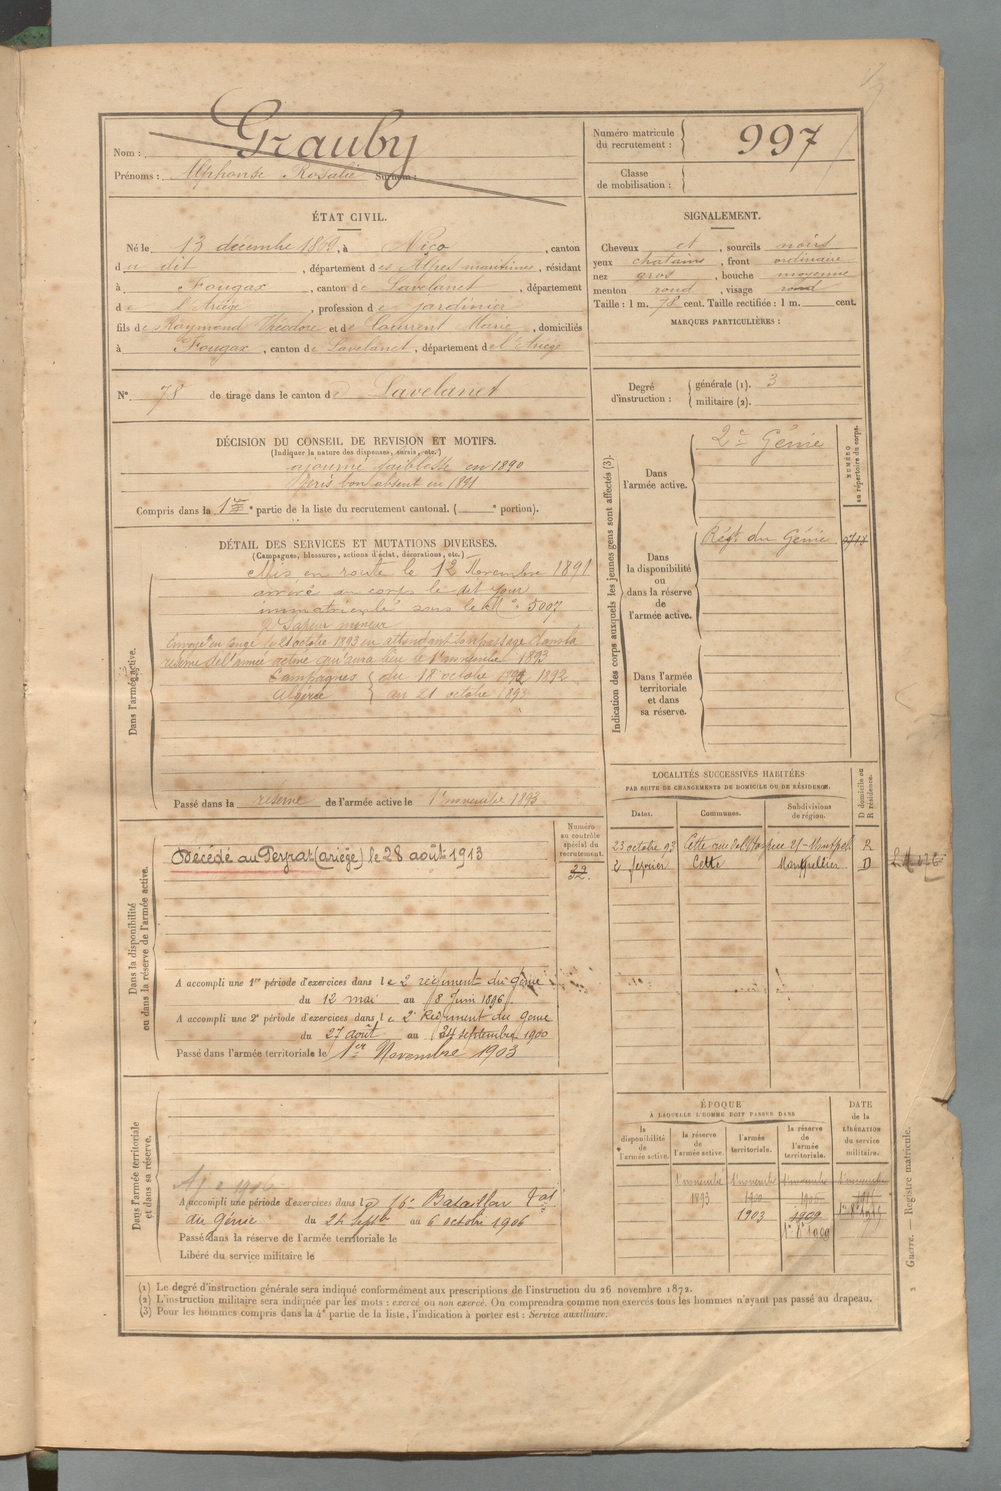 Nom : Grauby
Prénoms : Alphonse Rosalie Surnom :
Numéro matricule du recrutement : 997
Classe de mobilisation :
ÉTAT CIVIL.
Né le 13 décembre 1869, à Nice, canton
du dit, département des Alpes maritimes, résidant
à Fougax, canton de Lavelanet, département
de l'Ariège, profession de jardinier
fils de Raymond Théodore et de Laurent Marie, domiciliés
à Fougax, canton de Lavelanet, département de l'Ariège
N° 78 de tirage dans le canton de Lavelanet
SIGNALEMENT.
Cheveux et, sourcils noirs
yeux chatains, front ordinaire
nez gros, bouche moyenne
menton rond, visage rond
Taille : 1 m. 78 cent. Taille rectifiée : 1 m. cent.
MARQUES PARTICULIÈRES :
Degré d'instruction : générale (1). 3
militaire (2).
DÉCISION DU CONSEIL DE REVISION ET MOTIFS.
(Indiquer la nature des dispenses, sursis, etc.)
ajourné faiblesse en 1890
bon absent en 1891
Compris dans la 1re partie de la liste du recrutement cantonal. ( e portion).
DÉTAIL DES SERVICES ET MUTATIONS DIVERSES.
(Campagnes, blessures, actions d'éclat, décorations, etc.)
Dans l'armée active.
Mis en route le 12 Novembre 1891
arrivé au corps le dit jour
immatriculé sous le N° 5007
2e Sapeur mineur
Envoyé en congé le 21 octobre 1893 en attendant son passage dans la
réserve de l'armée active qui aura lieu le 1er novembre 1893
Campagnes du 18 octobre 1892
Algérie au 21 octobre 1893
Passé dans la réserve de l'armée active le 1er novembre 1893
Indication des corps auxquels les jeunes gens sont affectés (3).
NUMÉRO au répertoire du corps.
Dans l'armée active.
2e Génie
Dans la disponibilité ou dans la réserve de l'armée active.
Régt du Génie
Dans l'armée territoriale et dans sa réserve.
LOCALITÉS SUCCESSIVES HABITÉES
PAR SUITE DE CHANGEMENTS DE DOMICILE OU DE RÉSIDENCE.
Dates. Communes. Subdivisions de région. D domicile ou R résidence.
23 octobre 93 Cette R
2 février Cette Montpellier D
Dans la disponibilité ou dans la réserve de l'armée active.
Numéro au contrôle spécial du recrutement.
32.
Décédé au Peyrat (Ariège) le 28 août 1913
A accompli une 1re période d'exercices dans le 2 régiment du génie
du 12 mai au 8 Juin 1896.
A accompli une 2e période d'exercices dans le 2e Régiment du Génie
du 27 août au 24 septembre 1900
Passé dans l'armée territoriale le 1er Novembre 1903
Dans l'armée territoriale et dans sa réserve.
A accompli une période d'exercices dans le 16e Bataillon
du Génie du 24 Septbre au 6 octobre 1906
Passé dans la réserve de l'armée territoriale le
Libéré du service militaire le
ÉPOQUE
A LAQUELLE L'HOMME DOIT PASSER DANS
la disponibilité de l'armée active.
la réserve de l'armée active.
l'armée territoriale.
la réserve de l'armée territoriale.
DATE de la LIBÉRATION du service militaire.
1er novembre 1er novembre 1er novembre 1er novembre
1893 1900 1906
1903 1909
(1) Le degré d'instruction générale sera indiqué conformément aux prescriptions de l'instruction du 26 novembre 1872.
(2) L'instruction militaire sera indiquée par les mots : exercé ou non exercé. On comprendra comme non exercés tous les hommes n'ayant pas passé au drapeau.
(3) Pour les hommes compris dans la 4e partie de la liste, l'indication à porter est : Service auxiliaire.
Guerre. — Registre matricule.